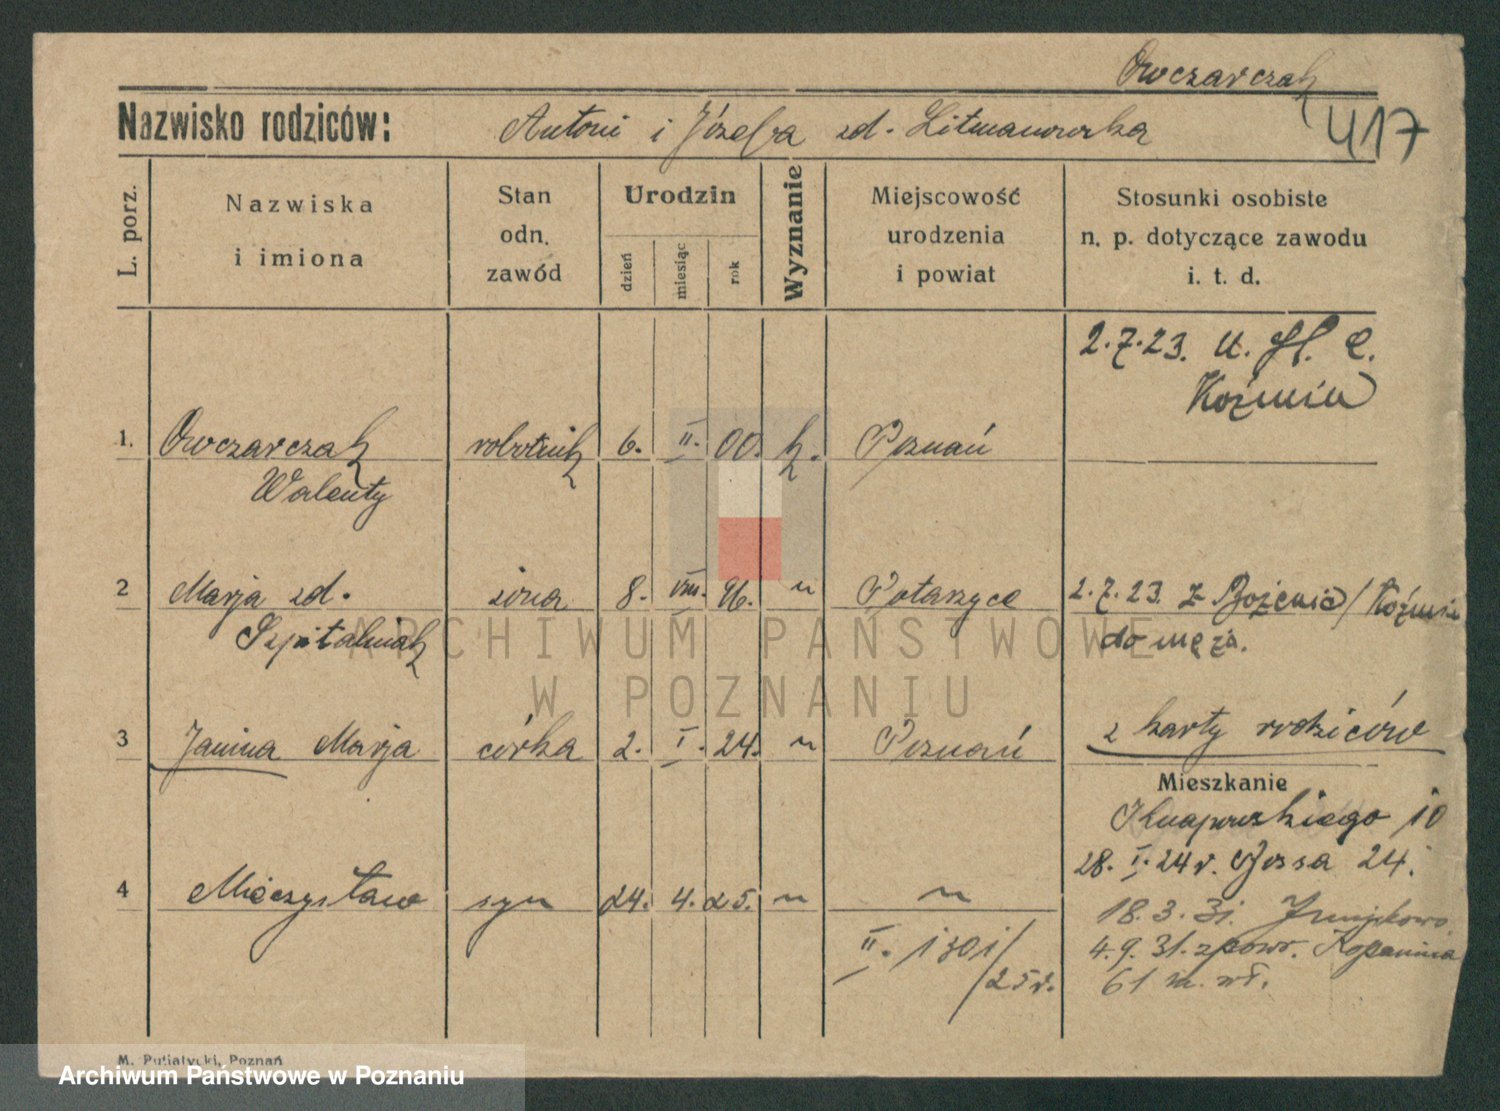 Owczarczak
Nazwisko rodziców: Antoni i Józefa zd. Litmanowska
417
L. porz.
Nazwiska i imiona
Stan odn. zawód
Urodzin
dzień miesiąc rok
Wyznanie
Miejscowość urodzenia i powiat
Stosunki osobiste n. p. dotyczące zawodu i. t. d.
2.7.23. u.
Koźmin
1. Owczarczak robotnik 6. II. 00. k. Poznań
Walenty
2 Marja zd. żona 8. VIII. 96. " Potarzyce 2.7.23. z Bożenic / Koźmin
Szpitalniak do męża.
3 Janina Marja córka 2. I. 24. " Poznań z karty rodziców
Mieszkanie
Knapowskiego 10
28. I. 24 r. Jossa 24.
4 Mieczysław syn 24. 4. 25. " "
18.3.31. Junikowo
II. 1301/25 r. 4.9.31. z powr. Kopanina
61 m. wł.
M. Putiatycki, Poznań
ARCHIWUM PAŃSTWOWE
W POZNANIU
Archiwum Państwowe w Poznaniu